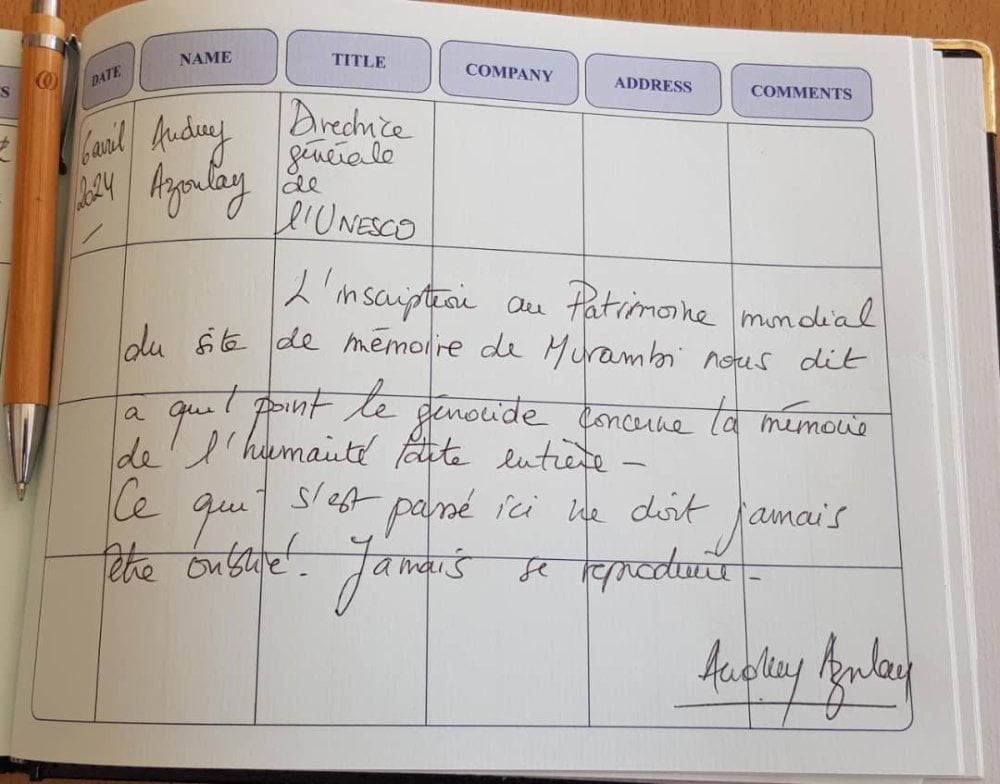 DATE NAME TITLE COMPANY ADDRESS COMMENTS
6 avril 2024 –
Audrey Azoulay
Directrice générale de l'UNESCO
L'inscription au Patrimoine mondial
du site de mémoire de Murambi nous dit
à quel point le génocide concerne la mémoire
de l'humanité toute entière –
Ce qui s'est passé ici ne doit jamais
être oublié. Jamais se reproduire –
Audrey Azoulay